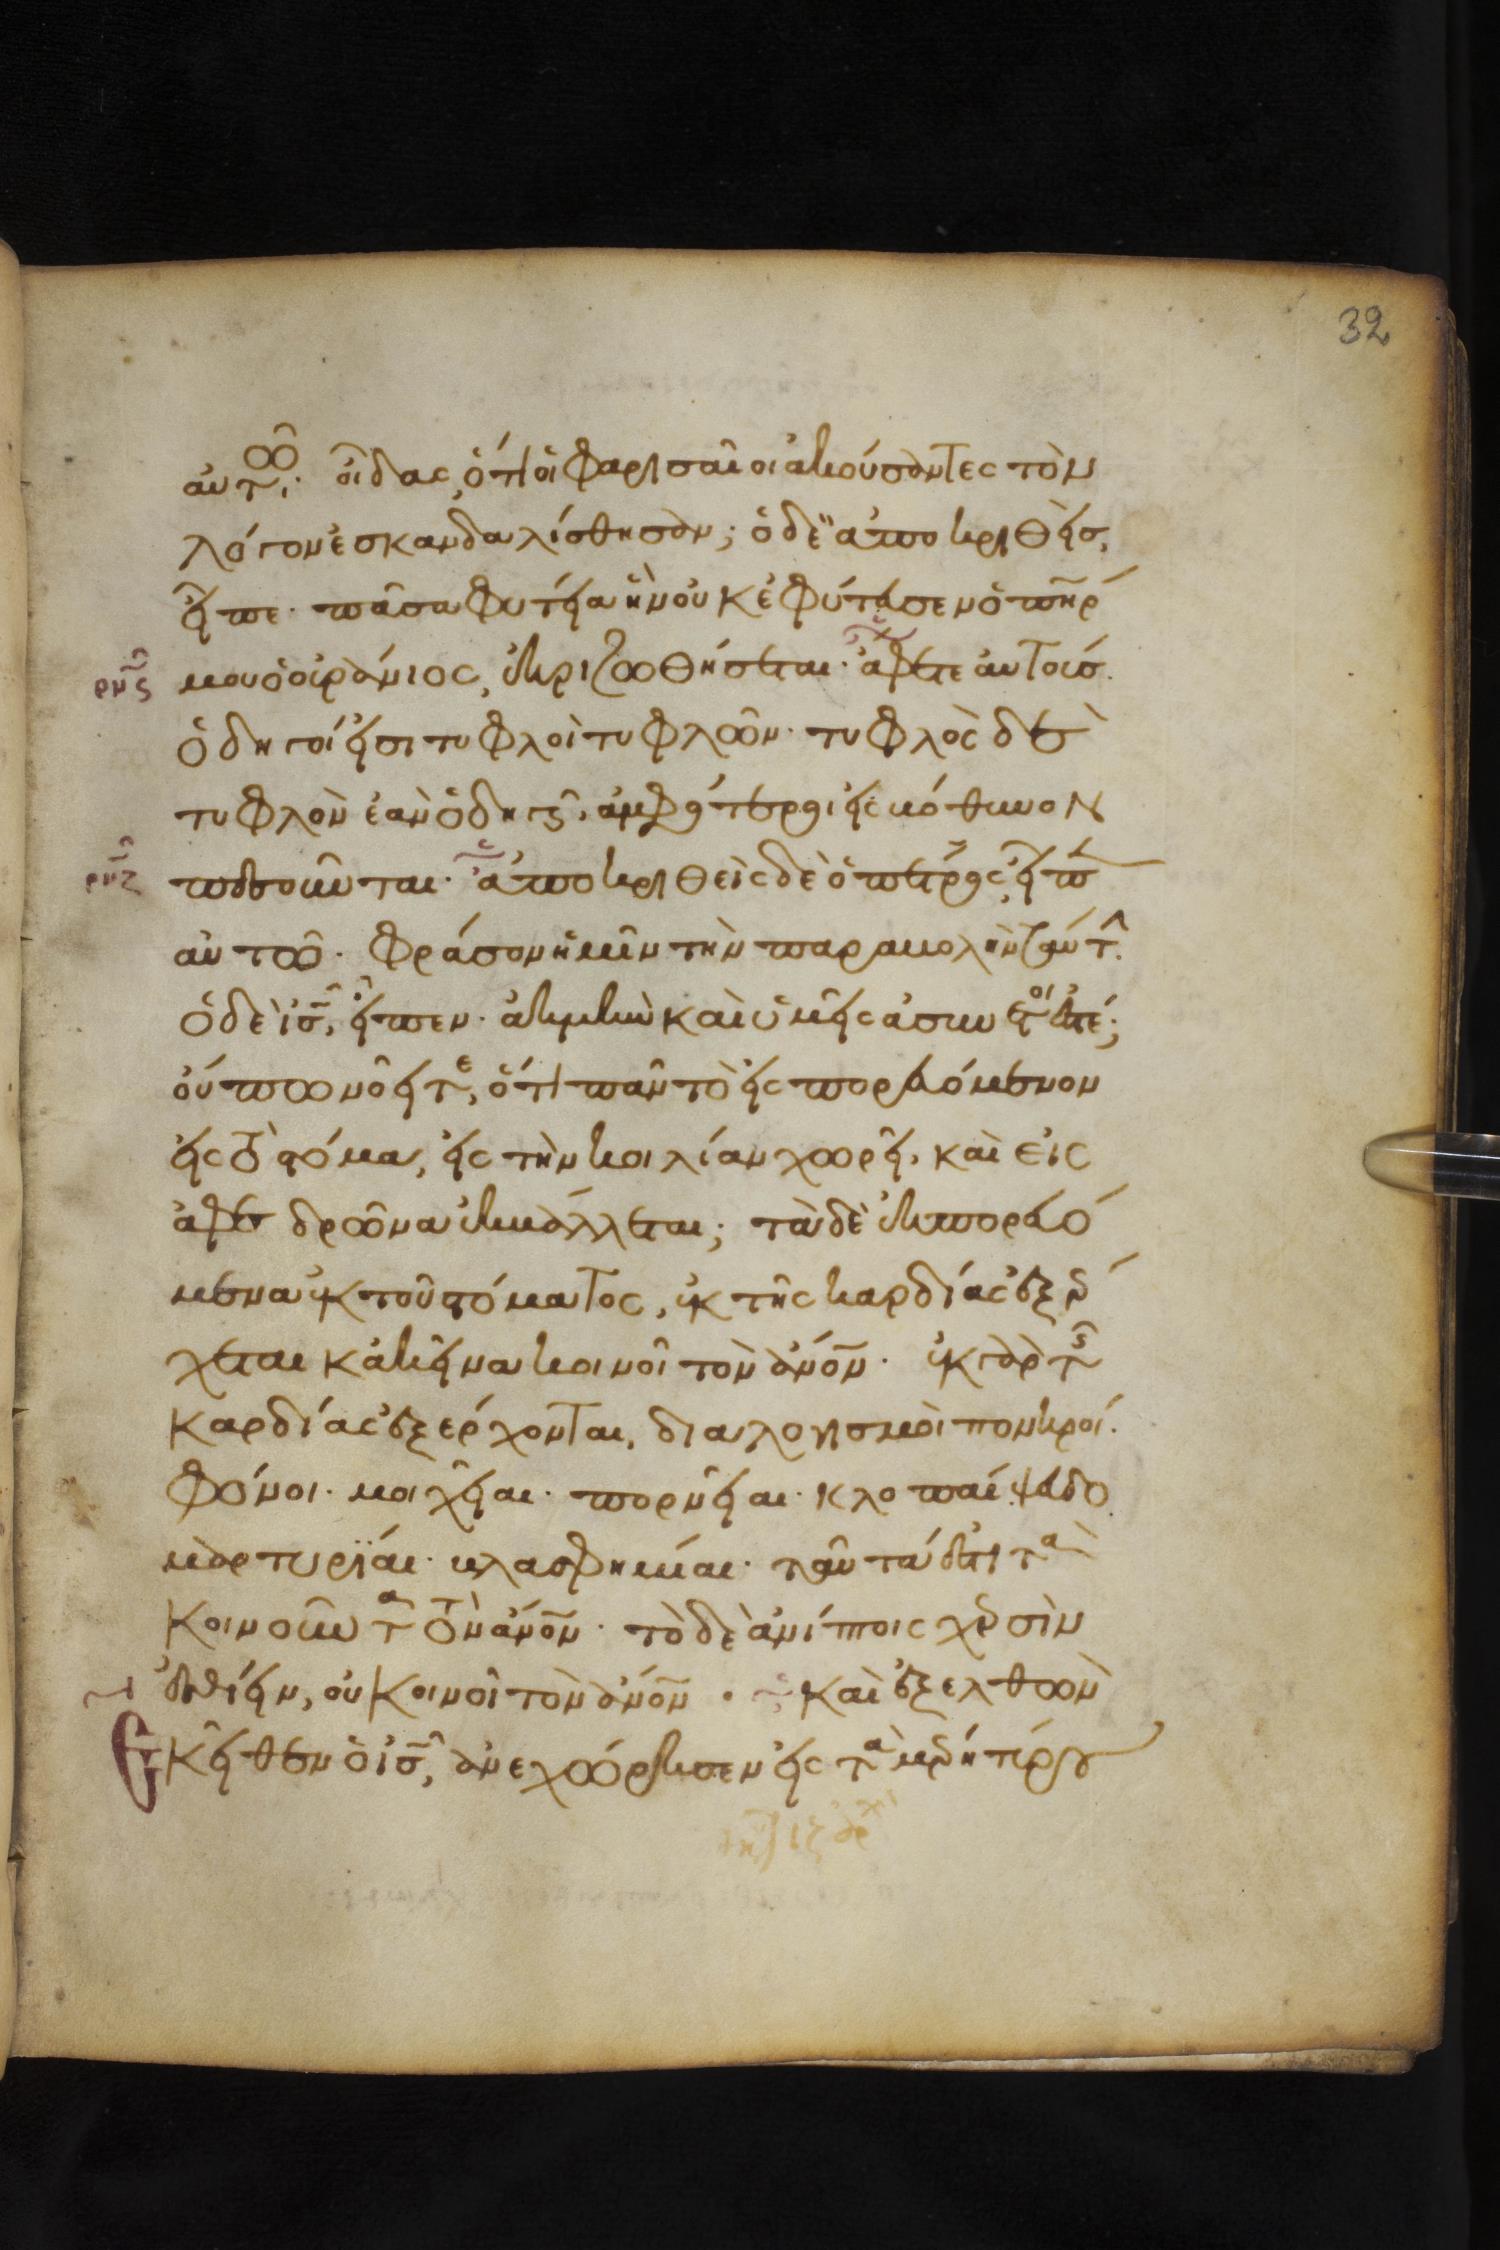 32
αὐτῶ· οἶδας, ὅτι οἱ φαρισαῖοι ἀκούσαντες τὸν
λόγον ἐσκανδαλίσθησαν; ὁ δὲ ἀποκριθεὶσ,
εἶπε· πᾶσα φυτεία ἣν οὐκ ἐφύτευσεν ὁ πηρ
μου ὁ οὐράνιος, ἐκριζωθήσεται· ἄφετε αὐτοὺσ.
ρνς
ὁδηγοί εἰσι τυφλοὶ τυφλῶν· τυφλὸς δὲ
τυφλὸν ἐὰν ὁδηγῆ, ἀμφότεροι εἰς βόθυνον
πεσοῦνται· ἀποκριθεὶς δὲ ὁ πέτρος, εἶπεν
ρνζ
αὐτῶ· φράσον ἡμῖν τὴν παραβολὴν ταύτην.
ὁ δὲ ισ, εἶπεν· ἀκμὴν καὶ ὑμεῖς ἀσύνετοί ἐστέ;
οὔπω νοεῖτε, ὅτι πᾶν τὸ εἰσπορευόμενον
εἰς τὸ στόμα, εἰς τὴν κοιλίαν χωρεῖ, καὶ εἰς
ἀφεδρῶνα ἐκβάλλεται; τὰ δὲ ἐκπορευό
μενα ἐκ τοῦ στόματος, ἐκ τῆς καρδίας ἐξέρ
χεται κἀκεῖνα κοινοῖ τὸν ανον· ἐκ γὰρ τῆς
καρδίας ἐξέρχονται, διαλογισμοὶ πονηροί.
φόνοι· μοιχεῖαι· πορνεῖαι· κλοπαί· ψευδο
μαρτυρίαι· βλασφημίαι· ταῦτά ἐστι τὰ
κοινοῦντα τὸν ανον· τὸ δὲ ἀνίπτοις χερσὶν
φαγεῖν, οὐ κοινοῖ τὸν ανον · καὶ ἐξελθὼν
ἐκεῖθεν ὁ ισ, ἀνεχώρησεν εἰς τὰ μέρη τύρου